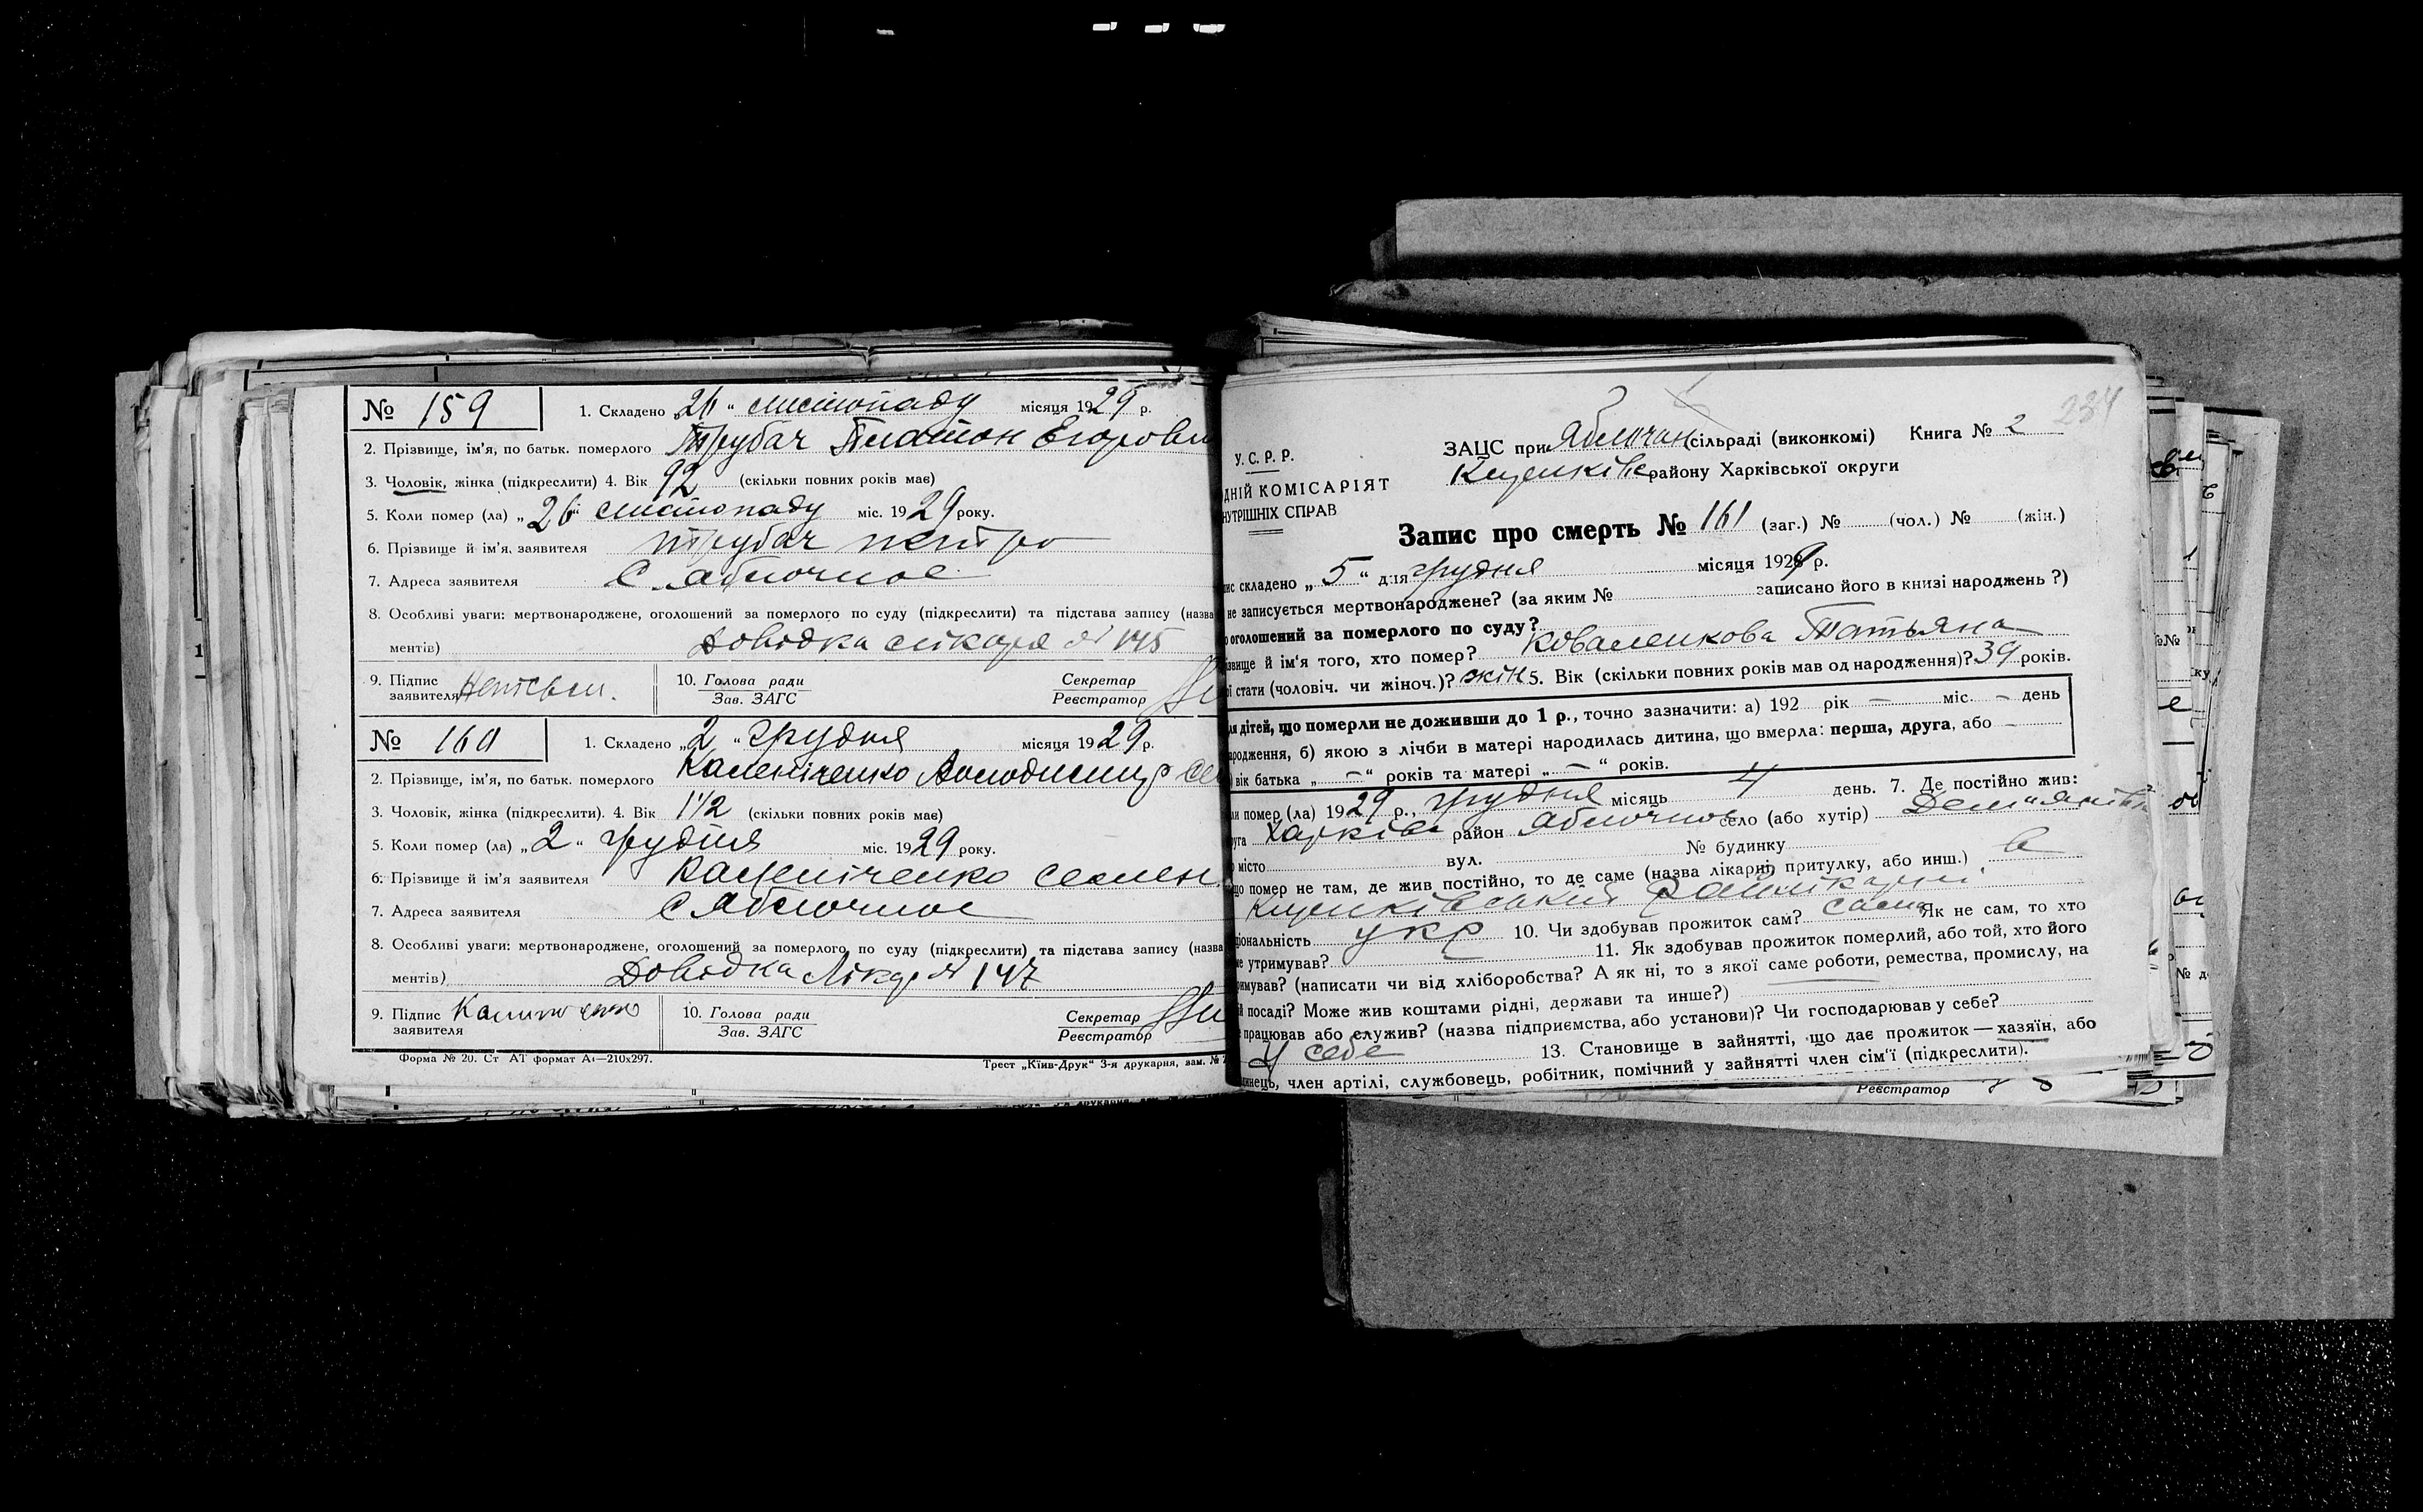 № 159 1. Складено „26" листопаду місяця 1929 р.
2. Прізвище, ім'я, по батьк. померлого Трубач Платон Егорови
3. Чоловік, жінка (підкреслити) 4. Вік 92 (скільки повних років має)
5. Коли помер (ла) „26" листопаду міс. 1929 року.
6. Прізвище й ім'я заявителя Трубач петро
7. Адреса заявителя С Яблочное
8. Особливі уваги: мертвонароджене, оголошений за померлого по суду (підкреслити) та підстава запису (назва
ментів) Довідка лікаря № 145
9. Підпис заявителя 10. Голова ради Секретар
Зав. ЗАГС Реєстратор
№ 160 1. Складено „2" грудня місяця 1929 р.
2. Прізвище, ім'я, по батьк. померлого Каленіченко Володимир Се
3. Чоловік, жінка (підкреслити). 4. Вік 1 1/2 (скільки повних років має)
5. Коли помер (ла) „2" грудня міс. 1929 року.
6. Прізвище й ім'я заявителя Каленіченко Семен
7. Адреса заявителя С Яблочное
8. Особливі уваги: мертвонароджене, оголошений за померлого по суду (підкреслити) та підстава запису (назва
ментів) Довідка Лікар № 147
9. Підпис заявителя 10. Голова ради Секретар
Зав. ЗАГС Реєстратор
Форма № 20. Ст АТ формат А4—210х297. Трест „Київ-Друк" 3-я друкарня, зам. №
234
У. С. Р. Р. ЗАЦС при Яблочан сільраді (виконкомі) Книга № 2
дній КОМІСАРІЯТ району Харківської округи
НУТРІШНІХ СПРАВ
Запис про смерть № 161 (заг.) № (чол.) № (жін.)
ис складено „5" дня грудня місяця 1929 р.
не записується мертвонароджене? (за яким № записано його в книзі народжень?)
оголошений за померлого по суду?
звище й ім'я того, хто помер? Коваленкова Татьяна
ої стати (чоловіч. чи жіноч.)? жін 5. Вік (скільки повних років мав од народження)? 39 років.
ля дітей, що померли не доживши до 1 р., точно зазначити: а) 192 рік — міс. — день
ародження, б) якою з лічби в матері народилась дитина, що вмерла: перша, друга, або —
вік батька „—" років та матері „—" років.
ли помер (ла) 1929 р., грудня місяць 4 день. 7. Де постійно жив:
уга Харківс район Яблочное село (або хутір)
місто вул. № будинку
що помер не там, де жив постійно, то де саме (назва лікарні, притулку, або инш.) в
ціональність укр 10. Чи здобував прожиток сам? сама Як не сам, то хто
ме утримував? 11. Як здобував прожиток померлий, або той, хто його
римував? (написати чи від хліборобства? А як ні, то з якої саме роботи, ремества, промислу, на
й посаді? Може жив коштами рідні, держави та инше?)
працював або служив? (назва підприємства, або установи)? Чи господарював у себе?
у себе 13. Становище в зайнятті, що дає прожиток — хазяїн, або
инець, член артілі, службовець, робітник, помічний у зайнятті член сім'ї (підкреслити).
Реєстратор